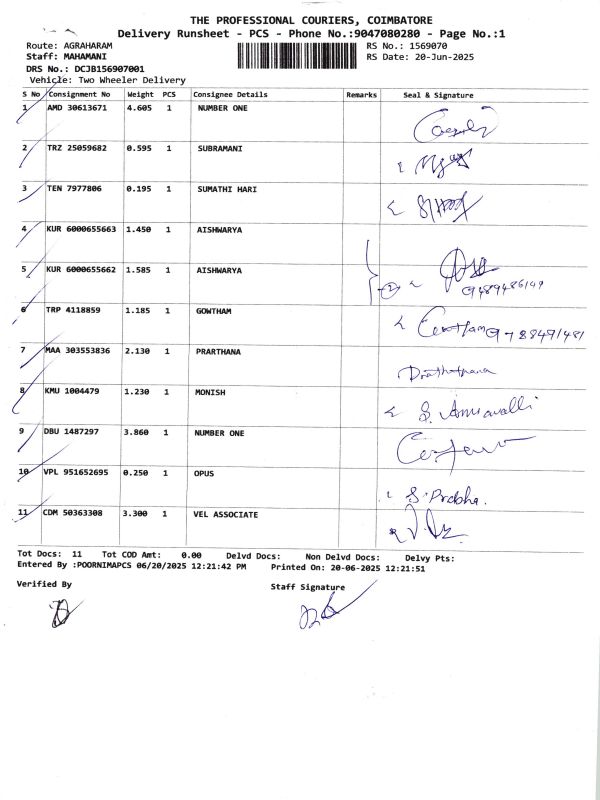 THE PROFESSIONAL COURIERS, COIMBATORE
Delivery Runsheet - PCS - Phone No.:9047080280 - Page No.:1
Route: AGRAHARAM RS No.: 1569070
Staff: MAHAMANI RS Date: 20-Jun-2025
DRS No.: DCJB156907001
Vehicle: Two Wheeler Delivery
S No Consignment No Weight PCS Consignee Details Remarks Seal & Signature
1 AMD 30613671 4.605 1 NUMBER ONE
2 TRZ 25059682 0.595 1 SUBRAMANI
3 TEN 7977806 0.195 1 SUMATHI HARI
4 KUR 6000655663 1.450 1 AISHWARYA
5 KUR 6000655662 1.585 1 AISHWARYA 2
6 TRP 4118859 1.185 1 GOWTHAM
7 MAA 303553836 2.130 1 PRARTHANA
8 KMU 1004479 1.230 1 MONISH
9 DBU 1487297 3.860 1 NUMBER ONE
10 VPL 951652695 0.250 1 OPUS S. Prabha.
11 CDM 50363308 3.300 1 VEL ASSOCIATE
Tot Docs: 11 Tot COD Amt: 0.00 Delvd Docs: Non Delvd Docs: Delvy Pts:
Entered By :POORNIMAPCS 06/20/2025 12:21:42 PM Printed On: 20-06-2025 12:21:51
Verified By Staff Signature